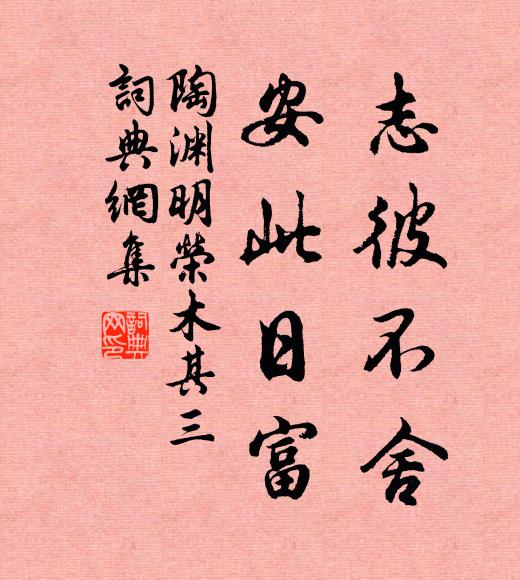 志彼不舍
安此日富
陶渊明榮木其三
詞典網集
詞典
网印